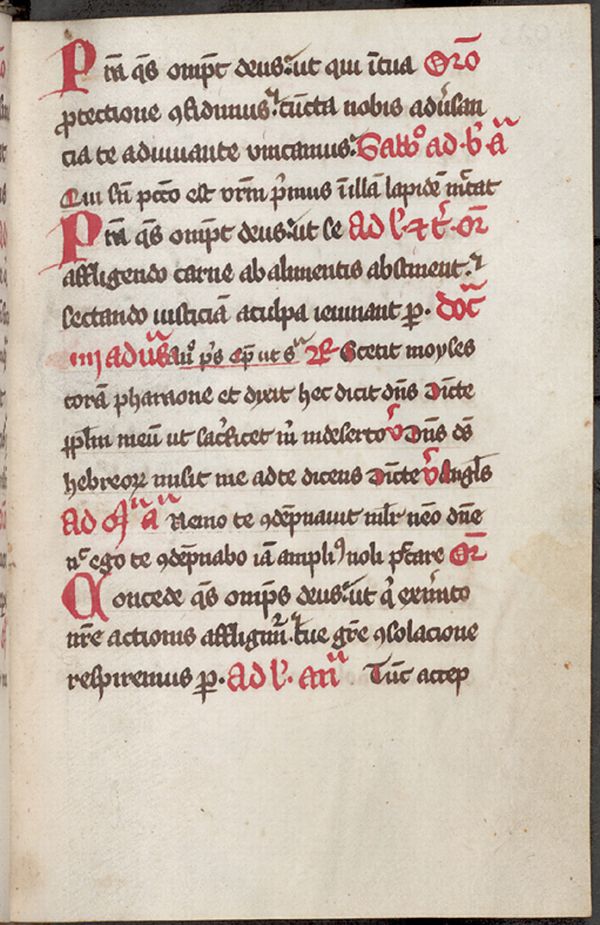 Pr̄a q̄s om̄pt deus ut qui ī tua Oro
protectione ꝯfidimus. cūcta nobis adūsan
cia te adiuuante vincamus. Sab̄bo ad b̄ a
Qui sn̄ pctō est vrm̄ p̄mus ī illā lapidē mͥttat
Pr̄a q̄s om̄pt deus ut se ad l̓ ⁊ t̓ or̄
affligendo carnē ab alimentis abstinent.
sectando iusticiā a culpa ieiunent ꝑ. doc̄
iiij ad ūs an̄ p̄s cp̄ ut sͣ ℟ Stetit moyses
corā pharaone et dixit hec dicit dn̄s Dīcte
pplm̄ meū ut sac̓ficet m̄ in deserto v̓ Dn̄s ds̄
hebreoꝝ misit me ad te dicens Dīcte v̓ Angl̄s
ad mͣ aͣ Nemo te ꝯdēpnauit ml̓r nēo dn̄e
n̄c ego te ꝯdēpnabo iā ampliꝰ noli pccare Or̄
Concede q̄s om̄ps deus. ut qͥ ex m̓ito
nr̄e actionis affligimͬ. tue gr̄e ꝯsolacione
respiremus ꝑ. ad l̓. an̄a Tūc accep